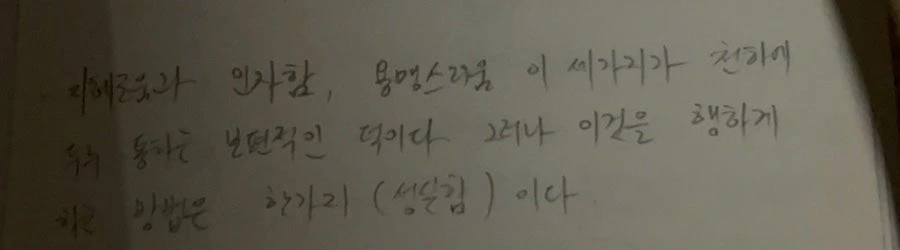 지혜로움과 인자함, 용맹스러움 이 세가지가 천하에
두루 통하는 보편적인 덕이다 그러나 이것을 행하게
하는 방법은 한가지 (성실함) 이다